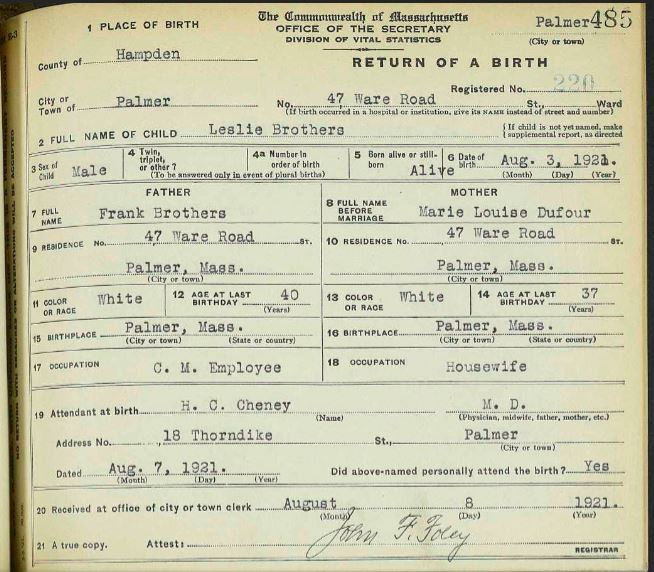 The Commonwealth of Massachusetts
OFFICE OF THE SECRETARY
DIVISION OF VITAL STATISTICS
RETURN OF A BIRTH
Palmer 485
(City or town)
1 PLACE OF BIRTH
County of Hampden
Registered No. 220
City or Town of Palmer No. 47 Ware Road St., Ward
(If birth occurred in a hospital or institution, give its NAME instead of street and number)
2 FULL NAME OF CHILD Leslie Brothers { If child is not yet named, make supplemental report, as directed
3 Sex of Child Male 4 Twin, triplet, or other? 4a Number in order of birth 5 Born alive or still-born Alive 6 Date of birth Aug. 3, 1921.
(To be answered only in event of plural births) (Month) (Day) (Year)
FATHER MOTHER
7 FULL NAME Frank Brothers 8 FULL NAME BEFORE MARRIAGE Marie Louise Dufour
9 RESIDENCE No. 47 Ware Road St. 10 RESIDENCE No. 47 Ware Road St.
Palmer, Mass. Palmer, Mass.
(City or town) (City or town)
11 COLOR OR RACE White 12 AGE AT LAST BIRTHDAY 40 (Years) 13 COLOR OR RACE White 14 AGE AT LAST BIRTHDAY 37 (Years)
15 BIRTHPLACE Palmer, Mass. 16 BIRTHPLACE Palmer, Mass.
(City or town) (State or country) (City or town) (State or country)
17 OCCUPATION C. M. Employee 18 OCCUPATION Housewife
19 Attendant at birth H. C. Cheney M. D.
(Name) (Physician, midwife, father, mother, etc.)
Address No. 18 Thorndike St., Palmer
(City or town)
Dated Aug. 7, 1921. Did above-named personally attend the birth? Yes
(Month) (Day) (Year)
20 Received at office of city or town clerk August 8 1921.
(Month) (Day) (Year)
21 A true copy. Attest: John F. Foley
REGISTRAR